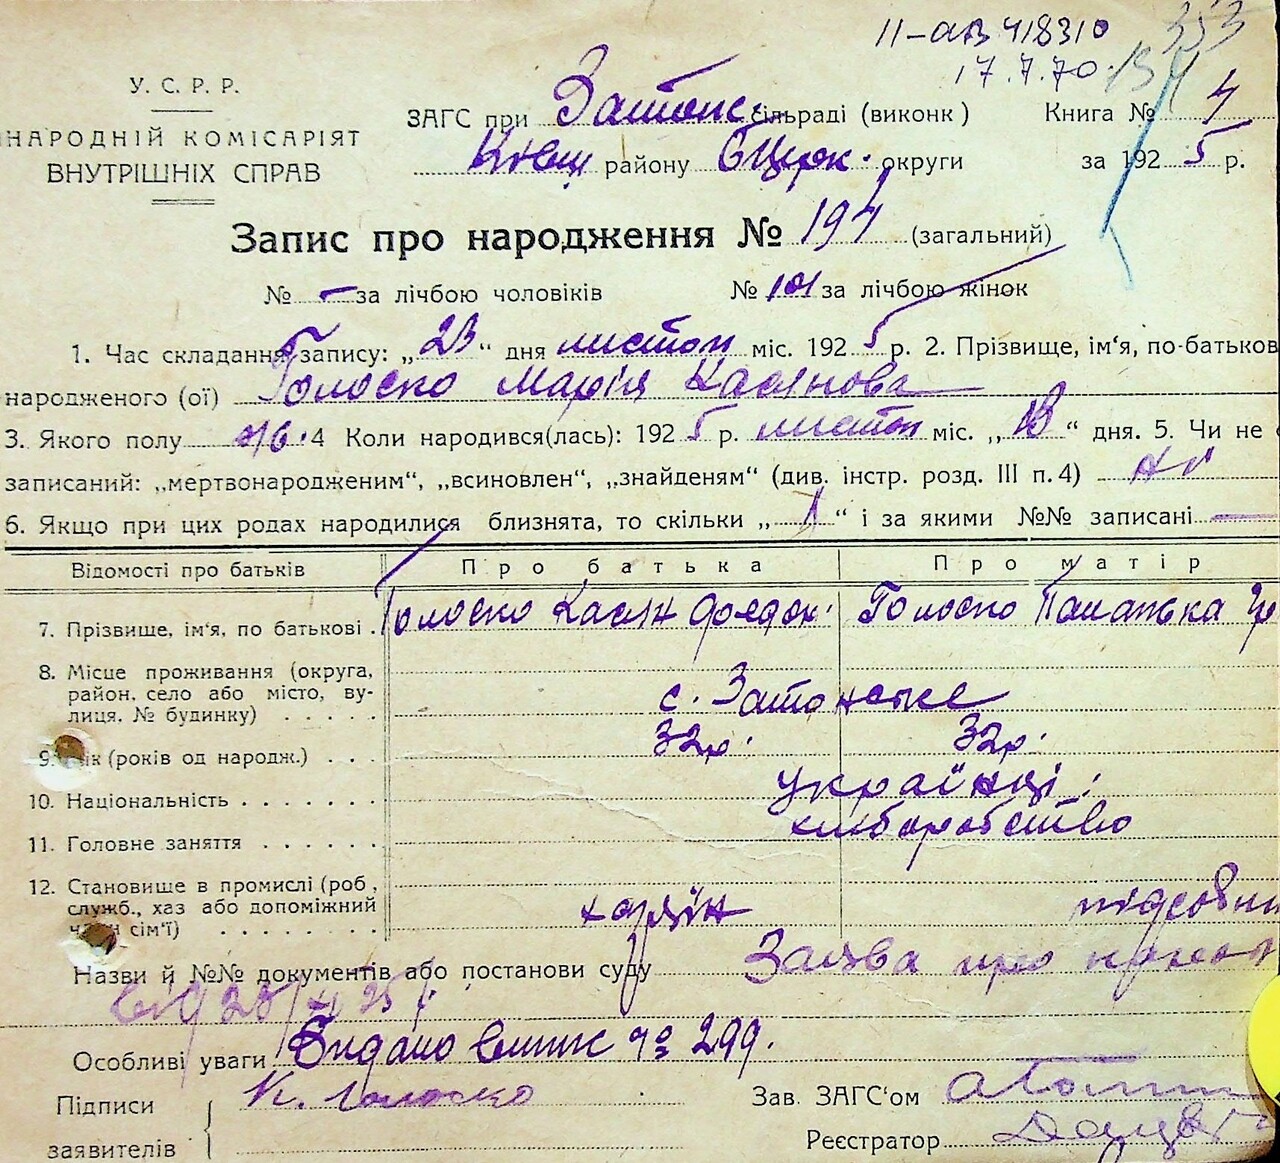 II-АВ 418310
353
17.7.70.
У. С. Р. Р.
НАРОДНІЙ КОМІСАРІЯТ
ВНУТРІШНІХ СПРАВ
ЗАГС при Затонс. сільраді (виконк)
Книга №
райoну БЦерк. округи
за 1925 р.
Запис про народження № 194 (загальний)
№ – за лічбою чоловіків
№ 101 за лічбою жінок
1. Час складання запису: „23“ дня листоп міс. 1925 р. 2. Прізвище, ім'я, по-батьков
народженого (ої) Голоско Марія Касянова
3. Якого полу ж. 4 Коли народився(лась): 1925 р. листоп міс. „18“ дня. 5. Чи не
записаний: „мертвонародженим“, „всиновлен“, „знайденям“ (див. інстр. розд. III п. 4) ні
6. Якщо при цих родах народилися близнята, то скільки „1“ і за якими №№ записані —
Відомості про батьків Про батька Про матір
7. Прізвище, ім'я, по батькові . Голоско Касян Федор. Голоско Паланька Гр
8. Місце проживання (округа,
район, село або місто, ву-
лиця, № будинку) . . . . . с. Затонське
9. ік (років од народж.) . . . 32р. 32р.
10. Національність . . . . . . . українці.
11. Головне заняття . . . . . . хліборобство
12. Становище в промислі (роб,
служб., хаз або допоміжний
член сім'ї) . . . . . . . . хазяїн підсобни
Назви й №№ документів або постанови суду Заява про
Особливі уваги Видано випис № 299.
Підписи К. Голоско
заявителів
Зав. ЗАГС'ом
Реєстратор